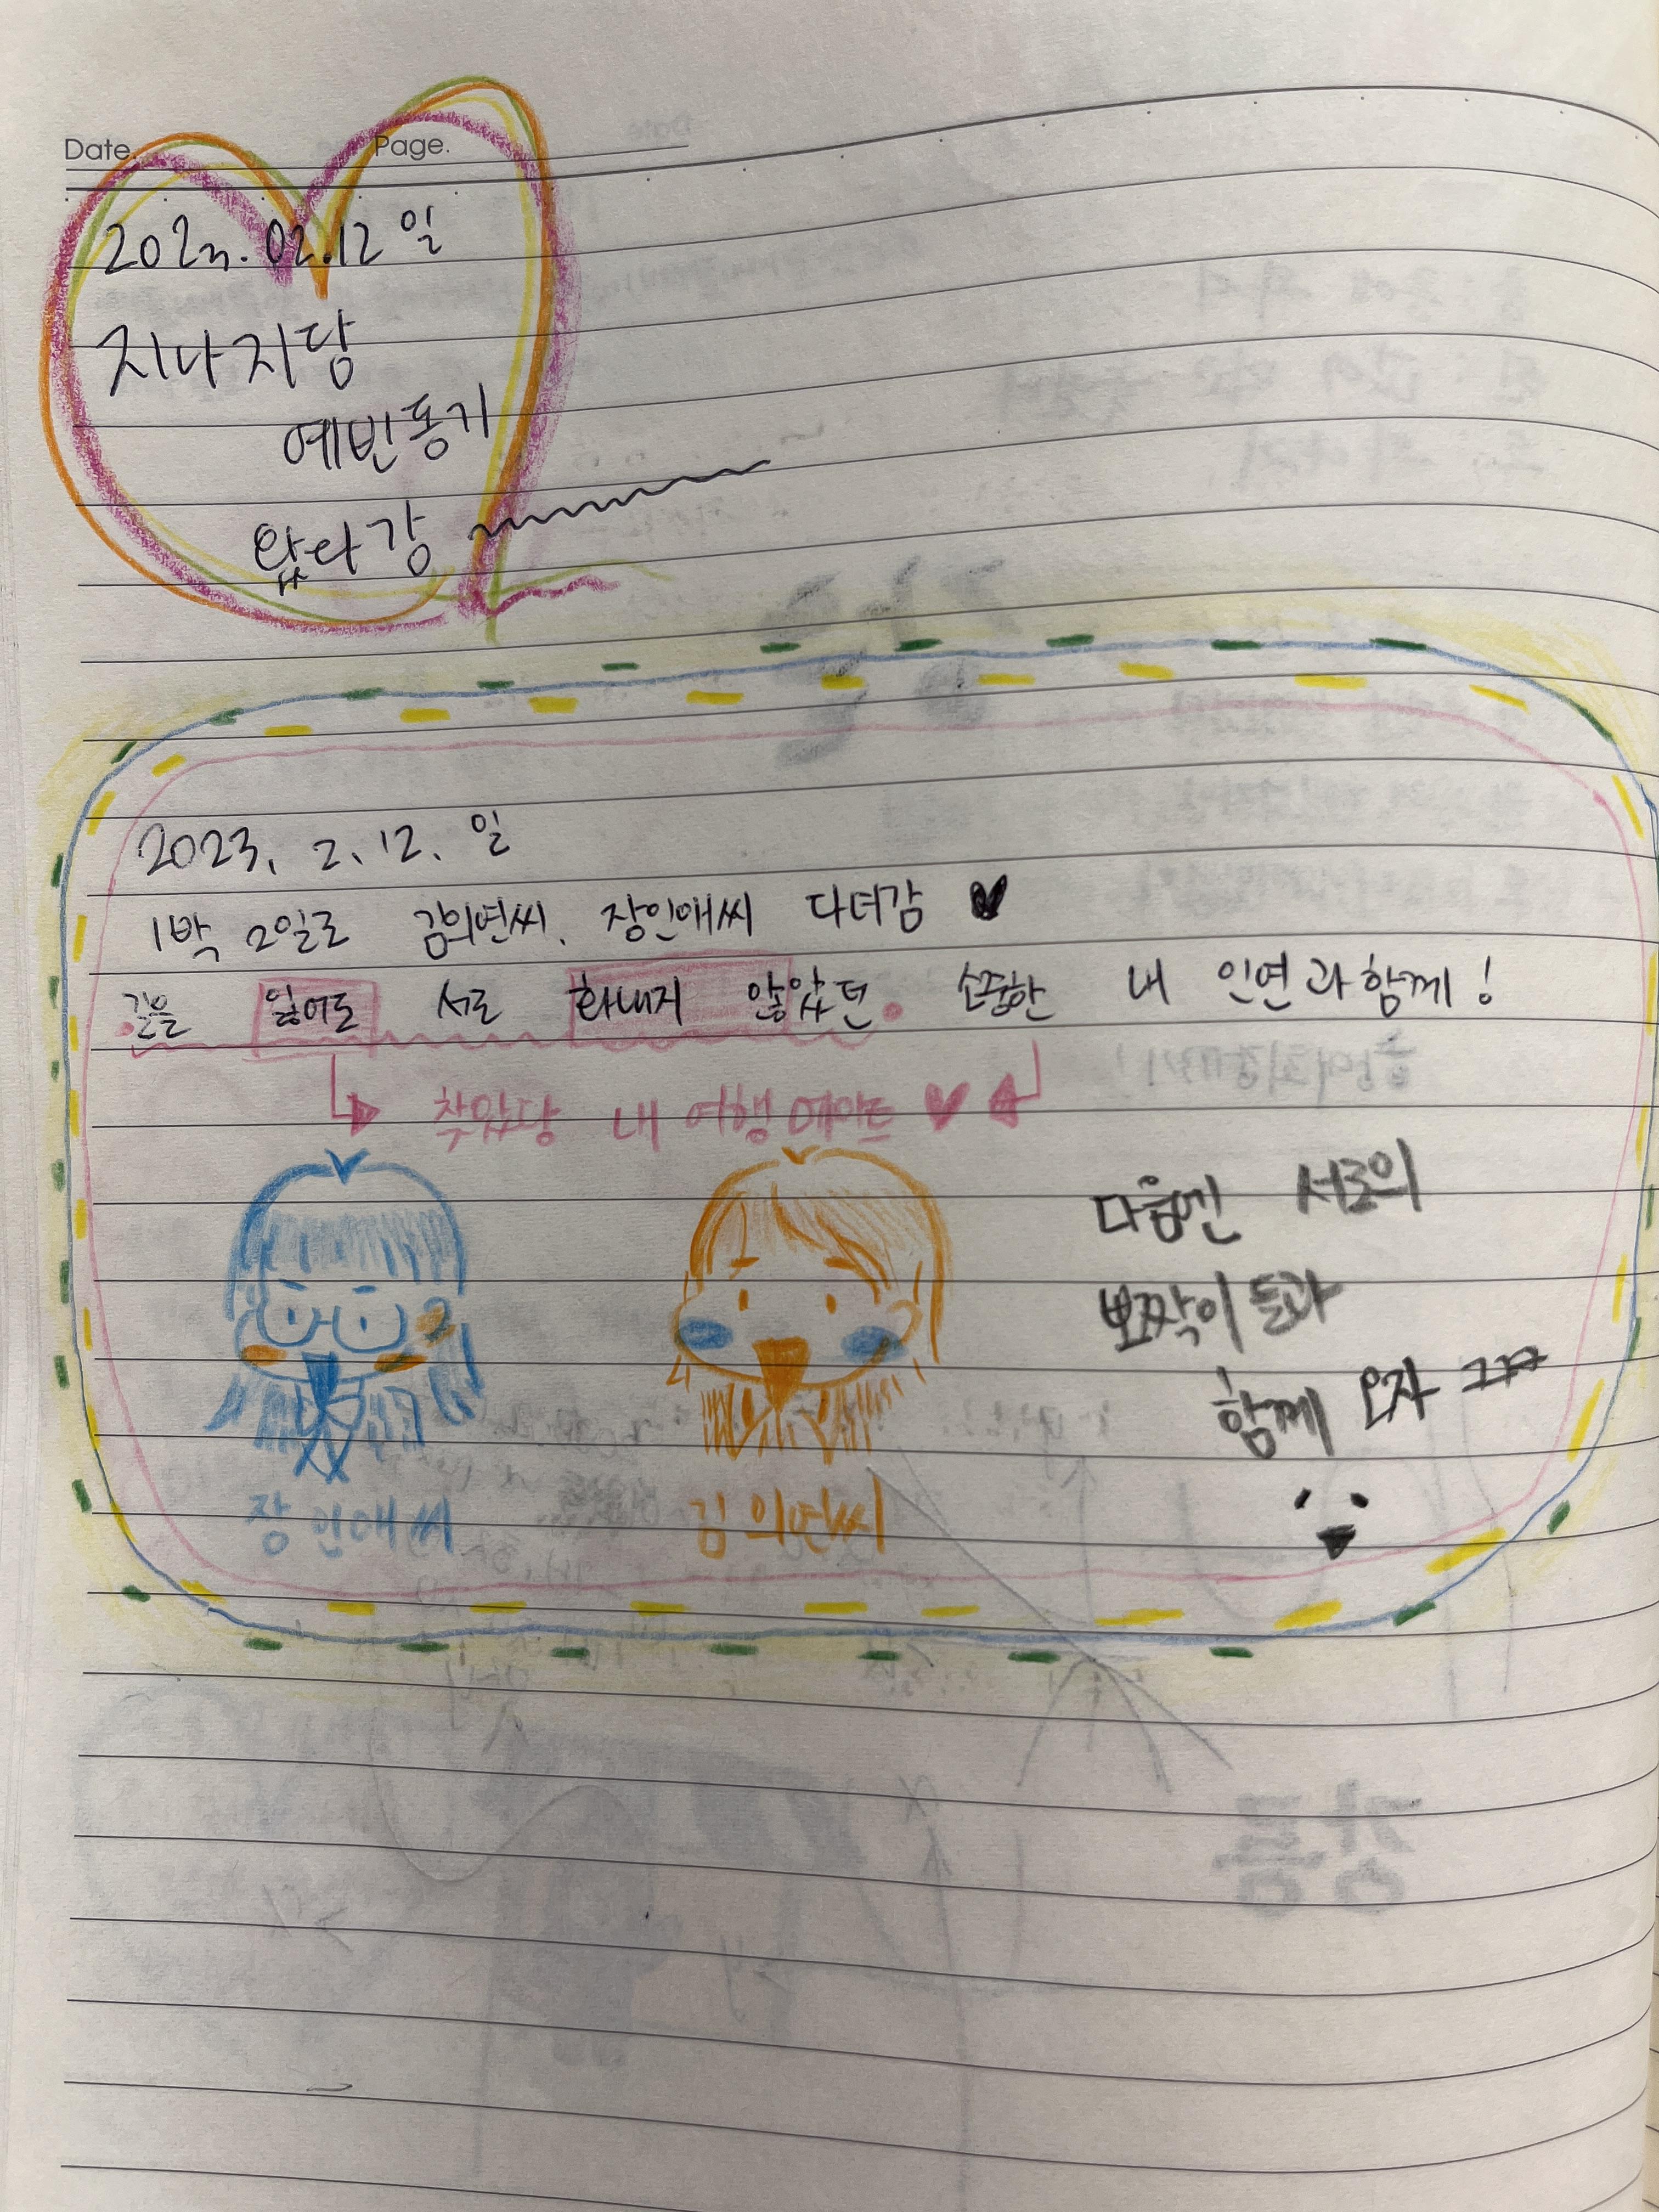 Date. Page.
2023. 02.12 일
지나지당
예빈동기
왔다감
2023. 2. 12. 일
1박 2일로 김의연씨, 장인애씨 다녀감 ♥
길을 잃어도 서로 화내지 않았던 소중한 내 인연과 함께!
찾았당 내 여행 메이트 ♥
다음엔 서로의
뽀짝이들과
함께 오자 ㄱㄱ
장인애씨 김의연씨